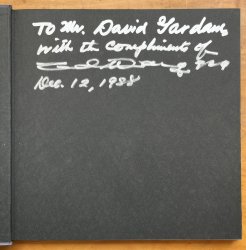 To Mr. David
with the compliments of
Dec. 12, 1988